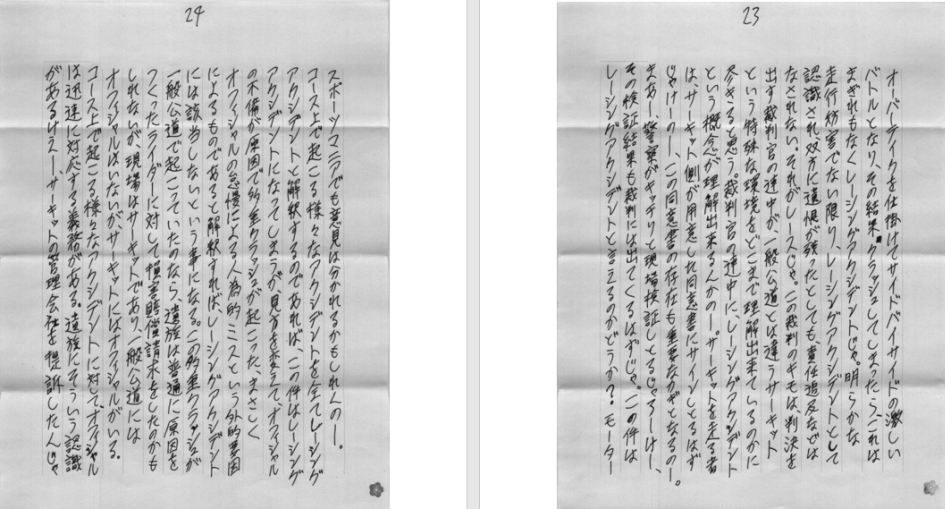 23
オーバーテイクを仕掛けてサイドバイサイドの激しい
バトルとなり、その結果クラッシュしてしまったら、これは
まぎれもなくレーシングアクシデントじゃ。明らかな
走行妨害でない限り、レーシングアクシデントとして
認識され双方に遺恨が残ったとしても、責任追及などは
なされない。それがレースじゃ。この裁判のキモは判決を
出す裁判官の連中が、一般公道とは違うサーキット
という特殊な環境をどこまで理解出来ているのかに
尽きると思う。裁判官の連中に、レーシングアクシデント
という概念が理解出来るんかのー。サーキットを走る者
は、サーキット側が用意した同意書にサインしとるはず
じゃけーのー、この同意書の存在も重要なカギとなるのー。
まあー警察がキッチリと現場検証しとるじゃろーけー、
その検証結果も裁判には出てくるはずじゃ。この件は
レーシングアクシデントと言えるのかどうか？モーター
24
スポーツマニアでも意見は分かれるかもしれんのー。
コース上で起こる様々なアクシデントを全てレーシング
アクシデントと解釈するのであれば、この件はレーシング
アクシデントになってしまうが、見方を変えてオフィシャル
の不備が原因で多重クラッシュが起こった、まさしく
オフィシャルの怠慢による人為的ミスという外的要因
によるものであると解釈すれば、レーシングアクシデント
には該当しないという事になる。この多重クラッシュが
一般公道で起こっていたのなら、遺族は普通に原因を
つくったライダーに対して損害賠償請求をしたのかも
しれないが、現場はサーキットであり、一般公道には
オフィシャルはいないが、サーキットにはオフィシャルがいる。
コース上で起こる様々なアクシデントに対て、オフィシャル
は迅速に対応する義務がある。遺族にそういう認識
があるけえー、サーキットの管理会社を提訴したんじゃ